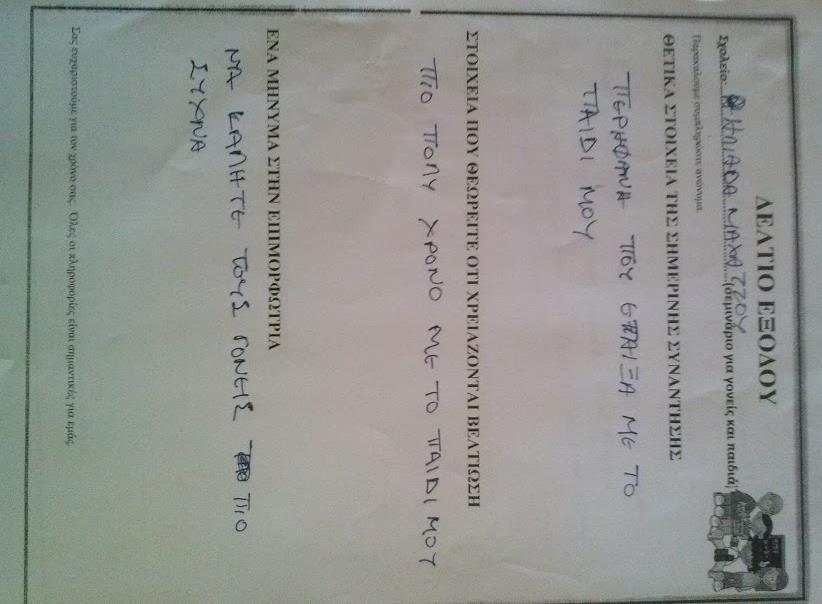 ΔΕΛΤΙΟ ΕΞΟΔΟΥ
Σχολείο: ΗΛΙΑΔΑ ΜΑΧΑΤΖΟΥ (σεμινάριο για γονείς και παιδιά)
Παρακαλούμε συμπληρώστε ανώνυμα.
ΘΕΤΙΚΑ ΣΤΟΙΧΕΙΑ ΤΗΣ ΣΗΜΕΡΙΝΗΣ ΣΥΝΑΝΤΗΣΗΣ
ΠΕΡΗΦΑΝΗ ΠΟΥ ΕΠΑΙΞΑ ΜΕ ΤΟ
ΠΑΙΔΙ ΜΟΥ
ΣΤΟΙΧΕΙΑ ΠΟΥ ΘΕΩΡΕΙΤΕ ΟΤΙ ΧΡΕΙΑΖΟΝΤΑΙ ΒΕΛΤΙΩΣΗ
ΠΙΟ ΠΟΛΥ ΧΡΟΝΟ ΜΕ ΤΟ ΠΑΙΔΙ ΜΟΥ
ΕΝΑ ΜΗΝΥΜΑ ΣΤΗΝ ΕΠΙΜΟΡΦΩΤΡΙΑ
ΝΑ ΚΑΛΗΤΕ ΤΟΥΣ ΓΟΝΕΙΣ ΠΙΟ
ΣΥΧΝΑ
Σας ευχαριστούμε για τον χρόνο σας. Όλες οι πληροφορίες είναι σημαντικές για εμάς.